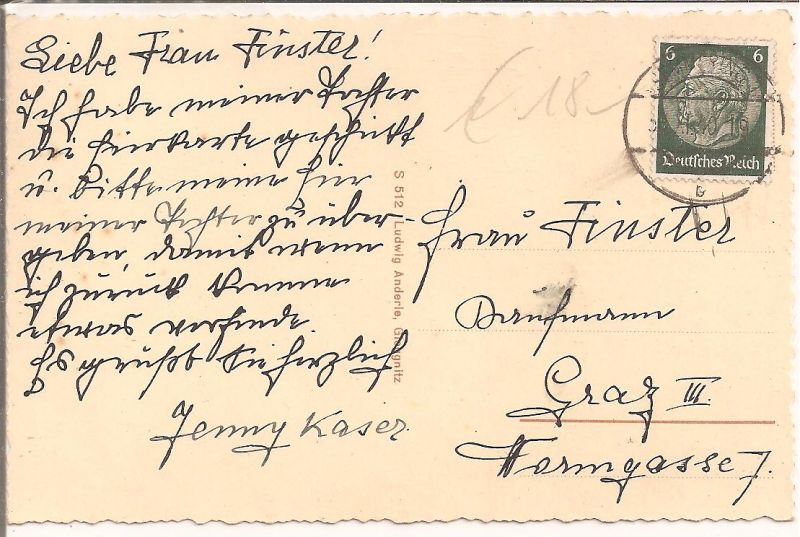 Liebe Frau Finster!
Ich habe meiner Tochter
die Eierkarte geschickt
u. bitte meine hier
meiner Tochter zu über-
geben, damit wenn
ich zurück komme
etwas vorfinde.
Es grüßt Sie herzlich
Jenny Kaser
S 512 Ludwig Anderle, Gloggnitz
€ 18-
6 6
Deutsches Reich
b
Frau Finster
Kaufmann
Graz III.
Wormgasse 7.